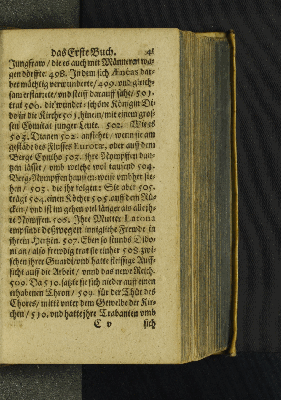 das Erste Buch. 41
Jungfraw / die es auch mit Männeren wa-
gen dörffte: 498. In dem sich Æneas dar-
ber mächtig verwunderte / 499. und gleich-
sam erstarrete / und steiff darauff sahe / 501.
trat 506. die wunder-schöne Königin Di-
do in die Kirche 503. hinein / mit einem gros-
sen Comitat junger Leute. 502. Wie es
503. Dianen 502. anstehet / wenn sie am
gestade des Flusses Eurotæ, oder auff dem
Berge Cyntho 503. ihre Nympffen dan-
tzen lässet / und welche wol tausend 504.
Berg-Nympffen hauffen-weise umbher ste-
hen / 503. die ihr folgen: Sie aber 505.
trägt 504. einen Köcher 505. auff dem Rü-
cken / und ist im gehen viel länger als alle ih-
re Nympffen. 506. Ihre Mutter Latona
empfindet deßwegen innigliche Freude in
ihrem Hertzen. 507. Eben so stunds Dido-
ni an / also freydig trat sie einher 508. zwi-
schen ihrer Guardi / und hatte fleissige Auff-
sicht auff die Arbeit / unnd das newe Reich.
509. Da 510. satzte sie sich nieder auff einen
erhabenen Thron / 509. für der Thür des
Chores / mitten unter dem Gewelbe der Kir-
chen / 510. und hatte jhre Trabanten umb
C v sich